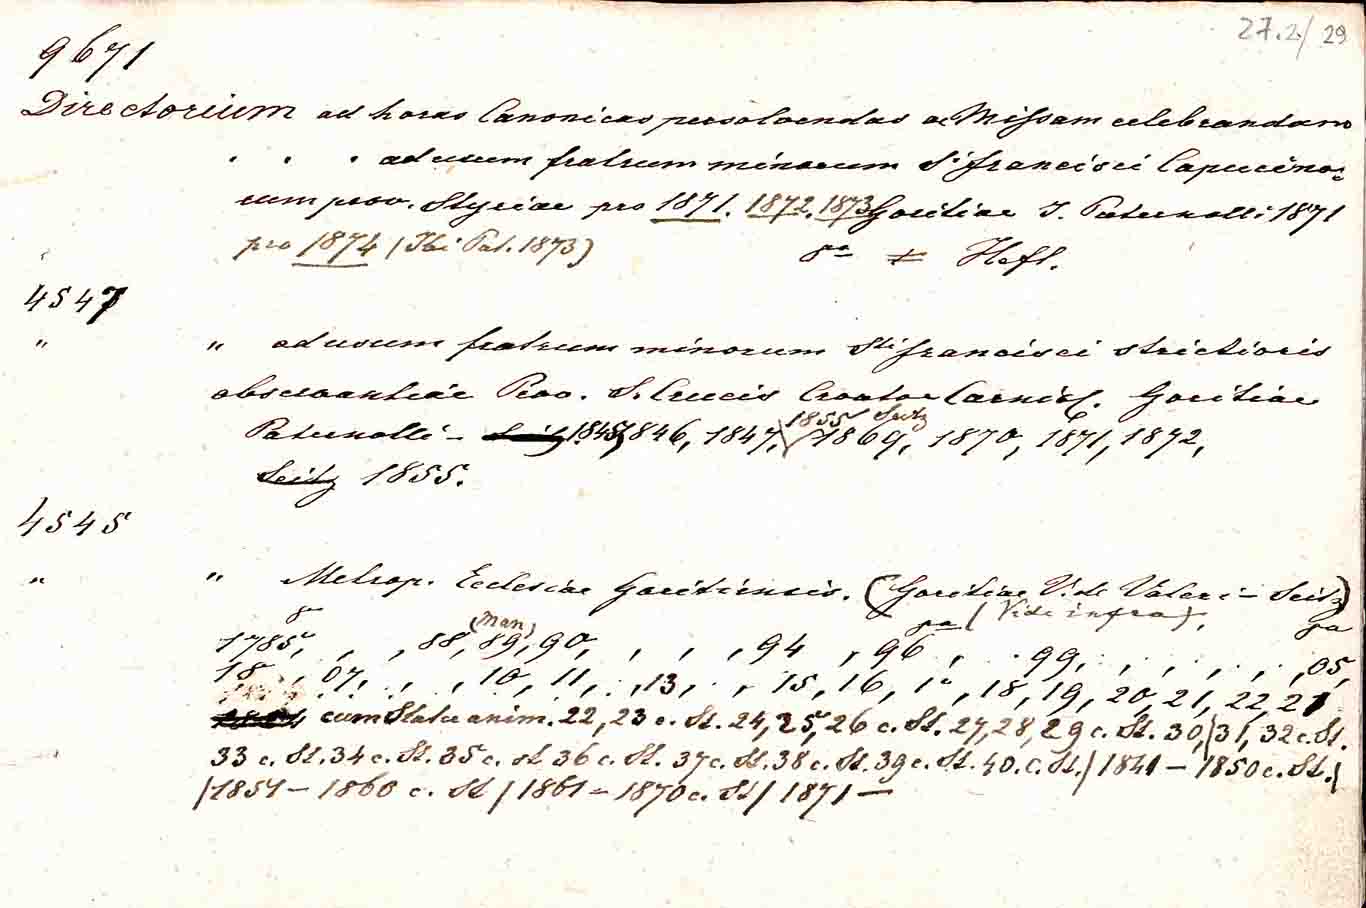 27.2/29
9671
Directorium ad horas Canonicas persolvendas ac Missam celebrandam
" " " ad usum fratrum minorum Sti Francisci Capucino=
rum prov. Styriae pro 1871. 1872. 1873 Goritiae J. Paternolli 1871
pro 1874 (Ibi Pat. 1873) 8º Heft.
4547
" " ad usum fratrum minorum Sti Francisci strictioris
observantiae Prov. S. Crucis Croatae Carniol. Goritiae
1855 Seitz
Paternolli – 1845, 846, 1847, 1869, 1870, 1871, 1872,
Seitz 1855.
4545
" " Metrop. Ecclesiae Goritiensis. (Goritiae Vide Valeri – Seitz)
8º (Man) 8º (Vide infra), 8º
1785, , , 88, 89, 90, , , , , 94 , 96 , . 99, . , . , . , 05,
18 , 07, . , . , 10, 11, . , 13, . , 15, 16, 1 , 18, 19, 20, 21, 22, 21
cum Statu anim. 22, 23 c. St. 24, 25, 26 c. St. 27, 28, 29 c. St. 30, / 31, 32 c. St.
33 c. St. 34 c. St. 35 c. st 36 c. St. 37 c. St. 38 c. St. 39 c. St. 40. c. St. / 1841 – 1850 c. St. /
/ 1851 – 1860 c. St / 1861 – 1870 c. St / 1871 –